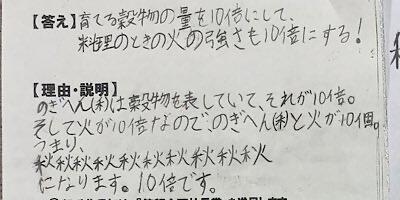 【答え】育てる穀物の量を10倍にして、
料理のときの火の強さも10倍にする!
【理由・説明】
のぎへん(禾)は穀物を表していて、それが10倍。
そして火が10倍なので、のぎへん(禾)と火が10個。
つまり、
秋秋秋秋秋秋秋秋秋秋
になります。10倍です。